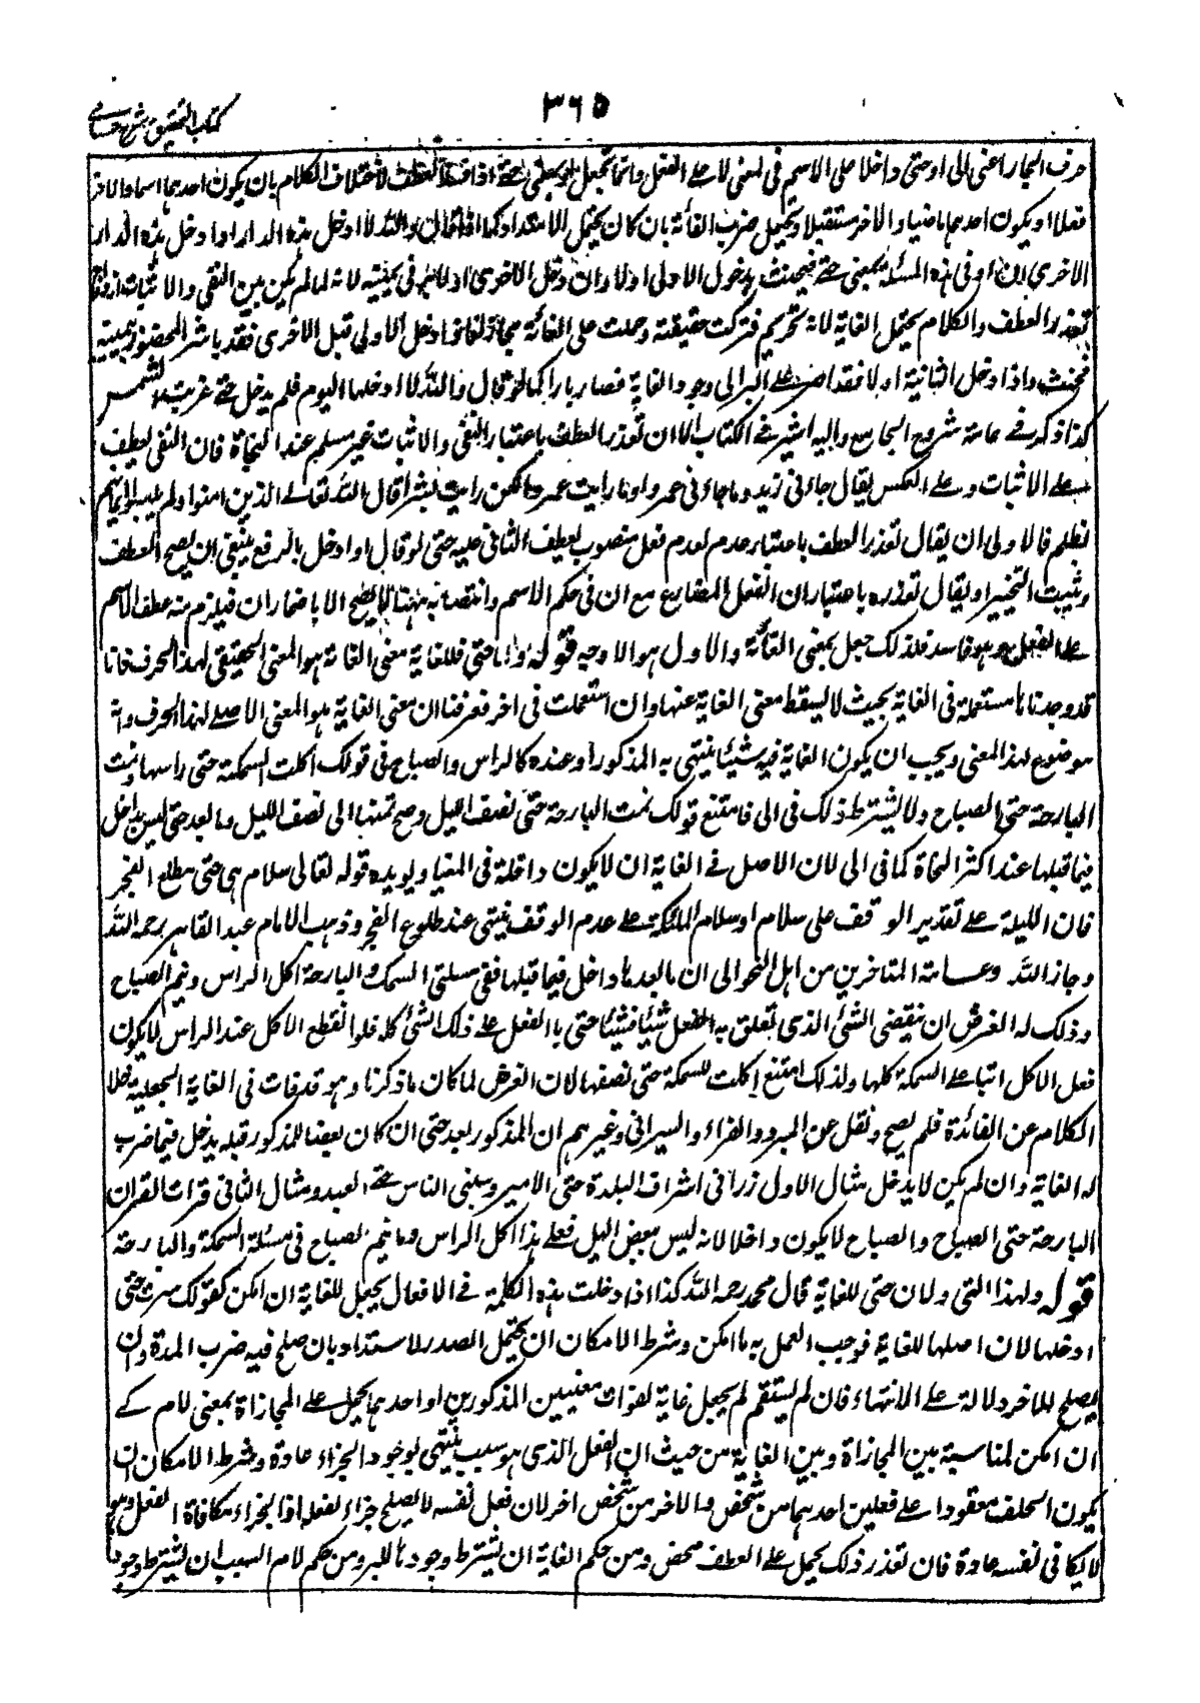 كتاب التحقيق شرح حسامي
٣٦٥
حرف الجار اعنى الى او حتى داخلا على الاسم فى المعنى لا على الفعل وانما تجعل بمعنى حتى اذا فسد العطف لاختلاف الكلام بان يكون احدهما اسما والاخر
فعلا او يكون احدهما ماضيا والاخر مستقبلا ويحتمل ضرب الغاية بان كان يحتمل الامتداد كما اذا قال والله لا ادخل هذه الدار او ادخل هذه الدار
الاخرى ان او فى هذه المسئلة بمعنى حتى فيحنث بدخول الاولى اولا وان دخل الاخرى اولا بر فى يمينه لانه لما لم يكن بين النفى والاثبات ازدواج
تعذر العطف والكلام يحتمل الغاية لانه تحريم فتركت حقيقته وحملت على الغاية مجازا فاذا دخل الاولى قبل الاخرى فقد باشر المحظور بيمينه
فحنث واذا دخل الثانية اولا فقد اصر على البر الى وجود الغاية فصار بارا كما لو قال والله لا ادخلها اليوم فلم يدخل حتى غربت الشمس
كذا ذكر فى عامة شروح الجامع واليه اشير فى الكتاب الا ان تعذر العطف باعتبار النفى والاثبات غير مسلم عند النحاة فان النفى يعطف
على الاثبات وعلى العكس يقال جاءنى زيد وما جاءنى عمرو وما رايت عمرا ولكن رايت بشرا قال الله تعالى الذين امنوا ولم يلبسوا ايمانهم
بظلم فالاولى ان يقال تعذر العطف باعتبار عدم فعل منصوب يعطف الثانى عليه حتى لو قال او ادخل بالرفع ينبغى ان يصح العطف
ويثبت التخيير او يقال تعذره باعتبار ان الفعل المضارع مع ان فى حكم الاسم وانتصابه ههنا لا يصح الا باضمار ان فيلزم منه عطف الاسم
على الفعل وهو فاسد فلذلك جعل بمعنى الغاية والاول هو الاوجه قوله واما حتى فللغاية معنى الغاية هو المعنى الحقيقى لهذا الحرف فانا
قد وجدناها مستعملة فى الغاية بحيث لا يسقط معنى الغاية عنها وان استعملت فى اخر فعرفنا ان معنى الغاية هو المعنى الاصلى لهذا الحرف وانه
موضوع لهذا المعنى ويجب ان يكون الغاية فيه شيئا ينتهى به المذكور او عنده كالراس والصباح فى قولك اكلت السمكة حتى راسها ونمت
البارحة حتى الصباح ولا يشترط ذلك فى الى فامتنع قولك نمت البارحة حتى نصف الليل وصح نمتها الى نصف الليل وما بعد حتى ليس بداخل
فيما قبلها عند اكثر النحاة كما فى الى لان الاصل فى الغاية ان لا يكون داخلة فى المغيا ويويده قوله تعالى سلام هى حتى مطلع الفجر
فان الليلة على تقدير الوقف على سلام او سلام الملئكة على عدم الوقف ينتهى عند طلوع الفجر وذهب الامام عبد القاهر رحمه الله
وجار الله وعامة المتاخرين من اهل النحو الى ان ما بعدها داخل فيما قبلها ففى مسئلتى السمك والبارحة اكل الراس ونيم الصباح
وذلك له الغرض ان ينقضى الشئ الذى تعلق به الفعل شيئا فشيئا حتى ياتى الفعل على ذلك الشئ كله فلو انقطع الاكل عند الراس لا يكون
فعل الاكل اتيا على السمكة كلها ولذلك امتنع اكلت السمكة حتى نصفها لان الغرض لما كان ما ذكرنا وهو قد فات فى الغاية الجعلية خلا
الكلام عن الفائدة فلم يصح ونقل عن المبرد والفراء والسيرافى وغيرهم ان المذكور بعد حتى ان كان بعضا للمذكور قبله يدخل فيما ضرب
له الغاية وان لم يكن لا يدخل مثال الاول زرانى اشراف البلدة حتى الامير وسبنى الناس حتى العبد ومثال الثانى قرات القران
البارحة حتى الصباح والصباح لا يكون داخلا لانه ليس بعض اليل فعلى هذا اكل الراس وما نيم الصباح فى مسئلة السمكة والبارحة
قوله ولهذا التى ولان حتى للغاية قال محمد رحمه الله كذا اذا دخلت هذه الكلمة فى الافعال يجعل للغاية ان امكن كقولك سرت حتى
ادخلها لان اصلها للغاية فوجب العمل به ما امكن وشرط الامكان ان يحتمل الصدر الامتداد بان صلح فيه ضرب المدة وان
يصلح للاخر دلالة على الانتهاء فان لم يستقم لم يجعل غاية لفوات معنيين المذكورين او احدهما يحمل على المجازاة بمعنى لام كى
ان امكن لمناسبة بين المجازاة وبين الغاية من حيث ان الفعل الذى هو سبب ينتهى بوجود الجزاء عادة وشرط الامكان ان
يكون الحلف معقودا على فعلين احدهما من شخص والاخر من شخص اخر لان فعل نفسه لا يصلح جزاء لفعله اذ الجزاء مكافاة الفعل وهو
لا يكافى نفسه عادة فان تعذر ذلك يحمل على العطف محض ومن حكم الغاية ان يشترط وجودها للبر ومن حكم لام السبب ان يشترط وجود